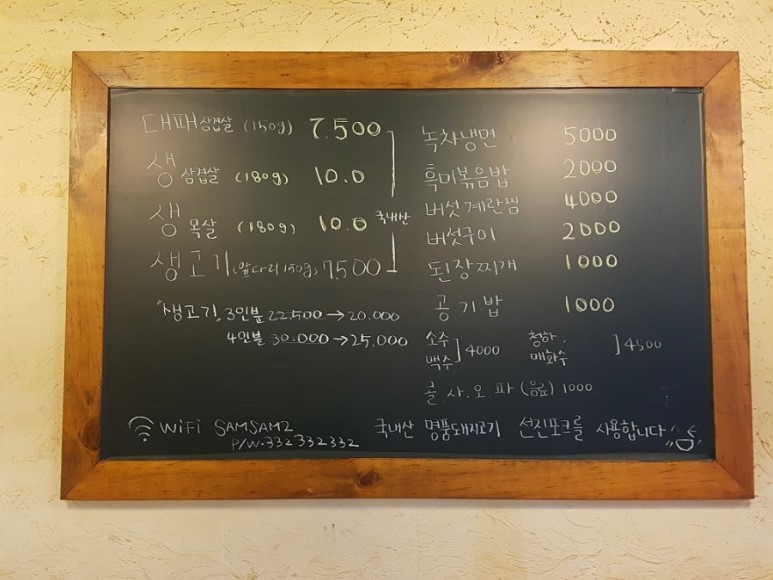 대패삼겹살 (150g) 7.500
생삼겹살 (180g) 10.0
생목살 (180g) 10.0
국내산
생고기 (앞다리 150g) 7500
"생고기" 3인분 22.500 → 20.000
4인분 30.000 → 25,000
녹차냉면 5000
흑미볶음밥 2000
버섯계란찜 4000
버섯구이 2000
된장찌개 1000
공기밥 1000
소주 맥주 ] 4000
청하. 매화수 ] 4500
콜.사.오.파 (음료) 1000
WiFi SAMSAM2
P/W.332332332
국내산 명품돼지고기 선진포크를 사용합니다